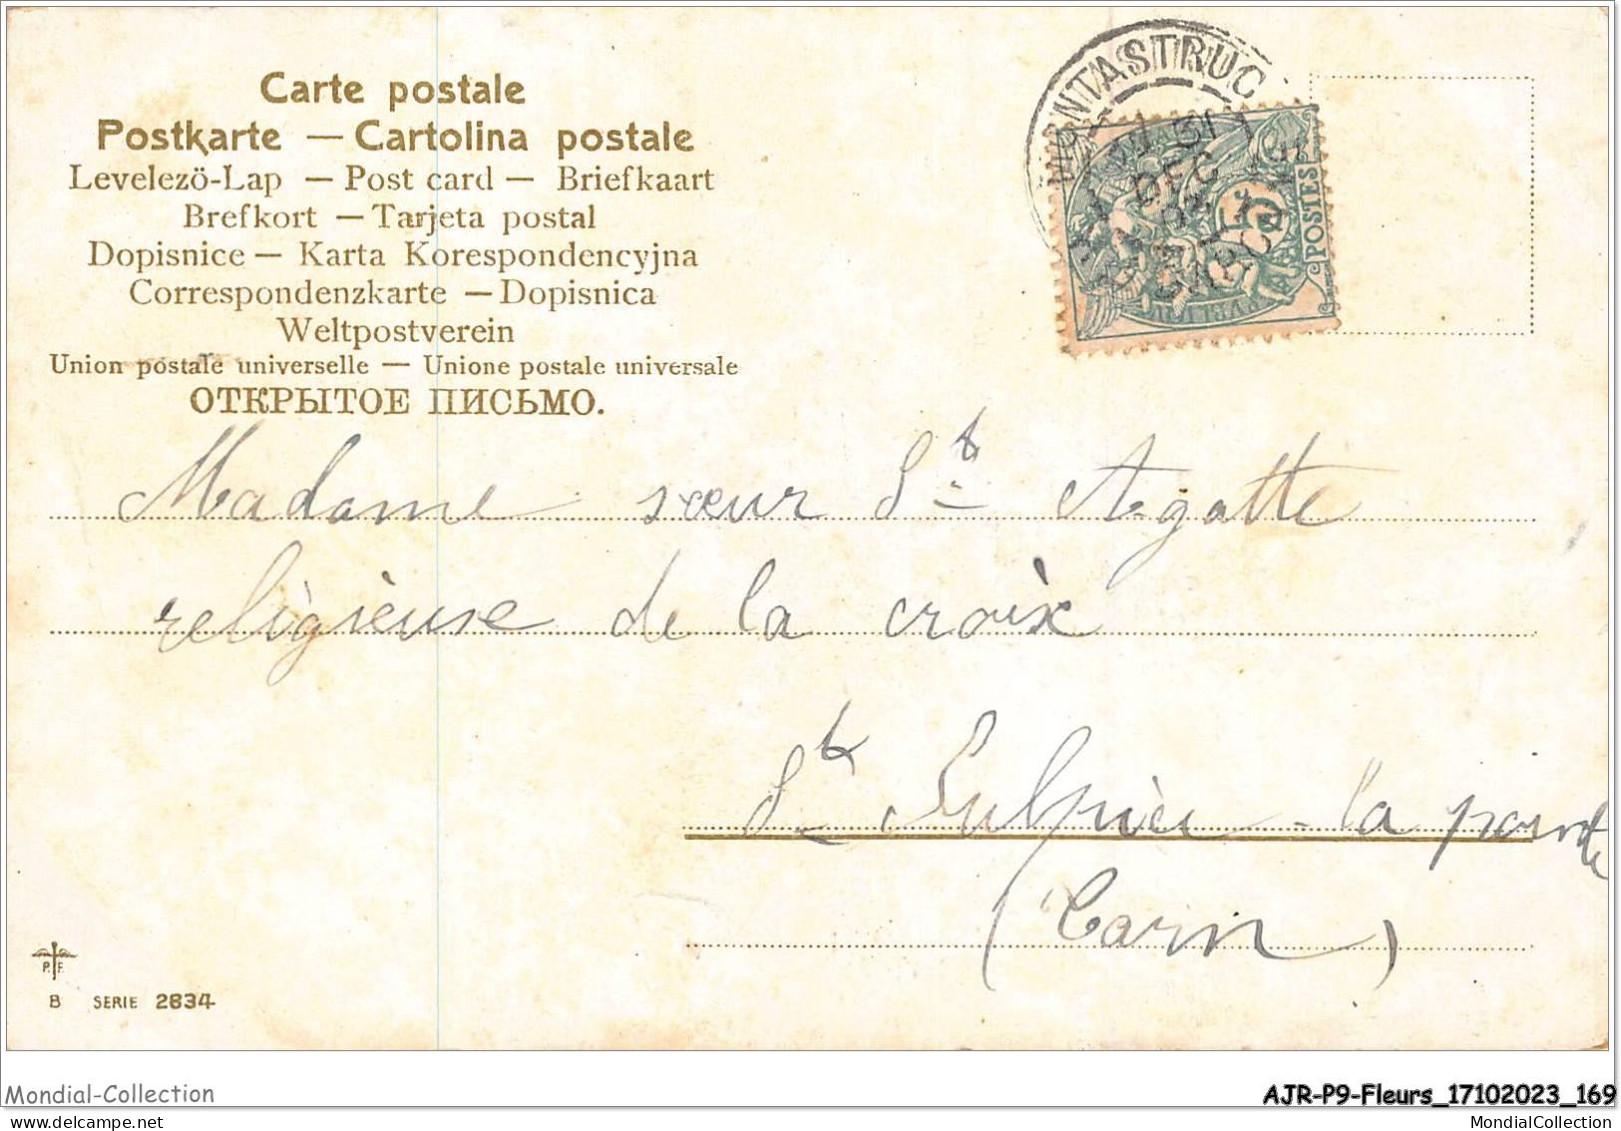 Carte postale
Postkarte — Cartolina postale
Levelezö-Lap — Post card — Briefkaart
Brefkort — Tarjeta postal
Dopisnice — Karta Korespondencyjna
Correspondenzkarte — Dopisnica
Weltpostverein
Union postale universelle — Unione postale universale
ОТКРЫТОЕ ПИСЬМО.
MONTASTRUC
31
DEC
5
POSTES
Madame sœur St Agatte
religieuse de la croix
St Sulpice - la pointe
(Tarn)
P. F.
B SERIE 2834
Mondial-Collection
AJR-P9-Fleurs_17102023_169
MondialCollection